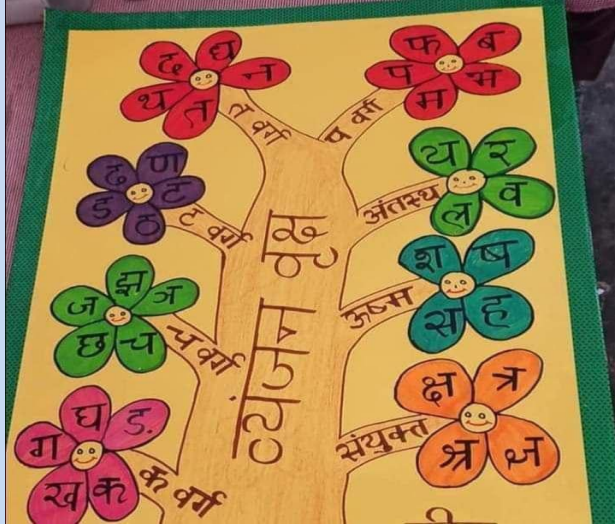 द ध न त थ
त वर्ग
फ ब भ म प
प वर्ग
ढ ण ट ठ ड
ट वर्ग
य र व ल
अंतस्थ
झ ञ च छ ज
च वर्ग
श ष ह स
ऊष्म
घ ड. क ख ग
क वर्ग
क्ष त्र ज्ञ श्र
संयुक्त
व्यंजन वृक्ष